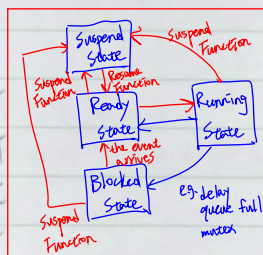 Suspend
State
Suspend
Function
Suspend
Function
Resume
Function
Ready
State
Running
State
the event
arrives
Blocked
State
eg. delay
queue full
mutex
Suspend
Function